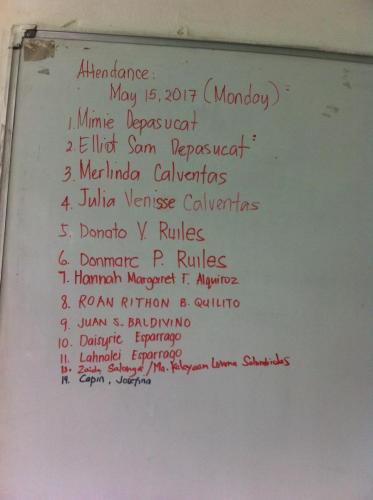 Attendance:
May 15, 2017 (Monday)
1. Mimie Depasucat
2. Elliot Sam Depasucat
3. Merlinda Calventas
4. Julia Venisse Calventas
5. Donato V. Ruiles
6. Donmarc P. Ruiles
7. Hannah Margaret F. Alquiroz
8. ROAN RITHON B. QUILITO
9. JUAN S. BALDIVINO
10. Daisyrie Esparrago
11. Lahnalei Esparrago
Zaida Salonga / Ma. Kaleyaan
14. Capin, Josefina